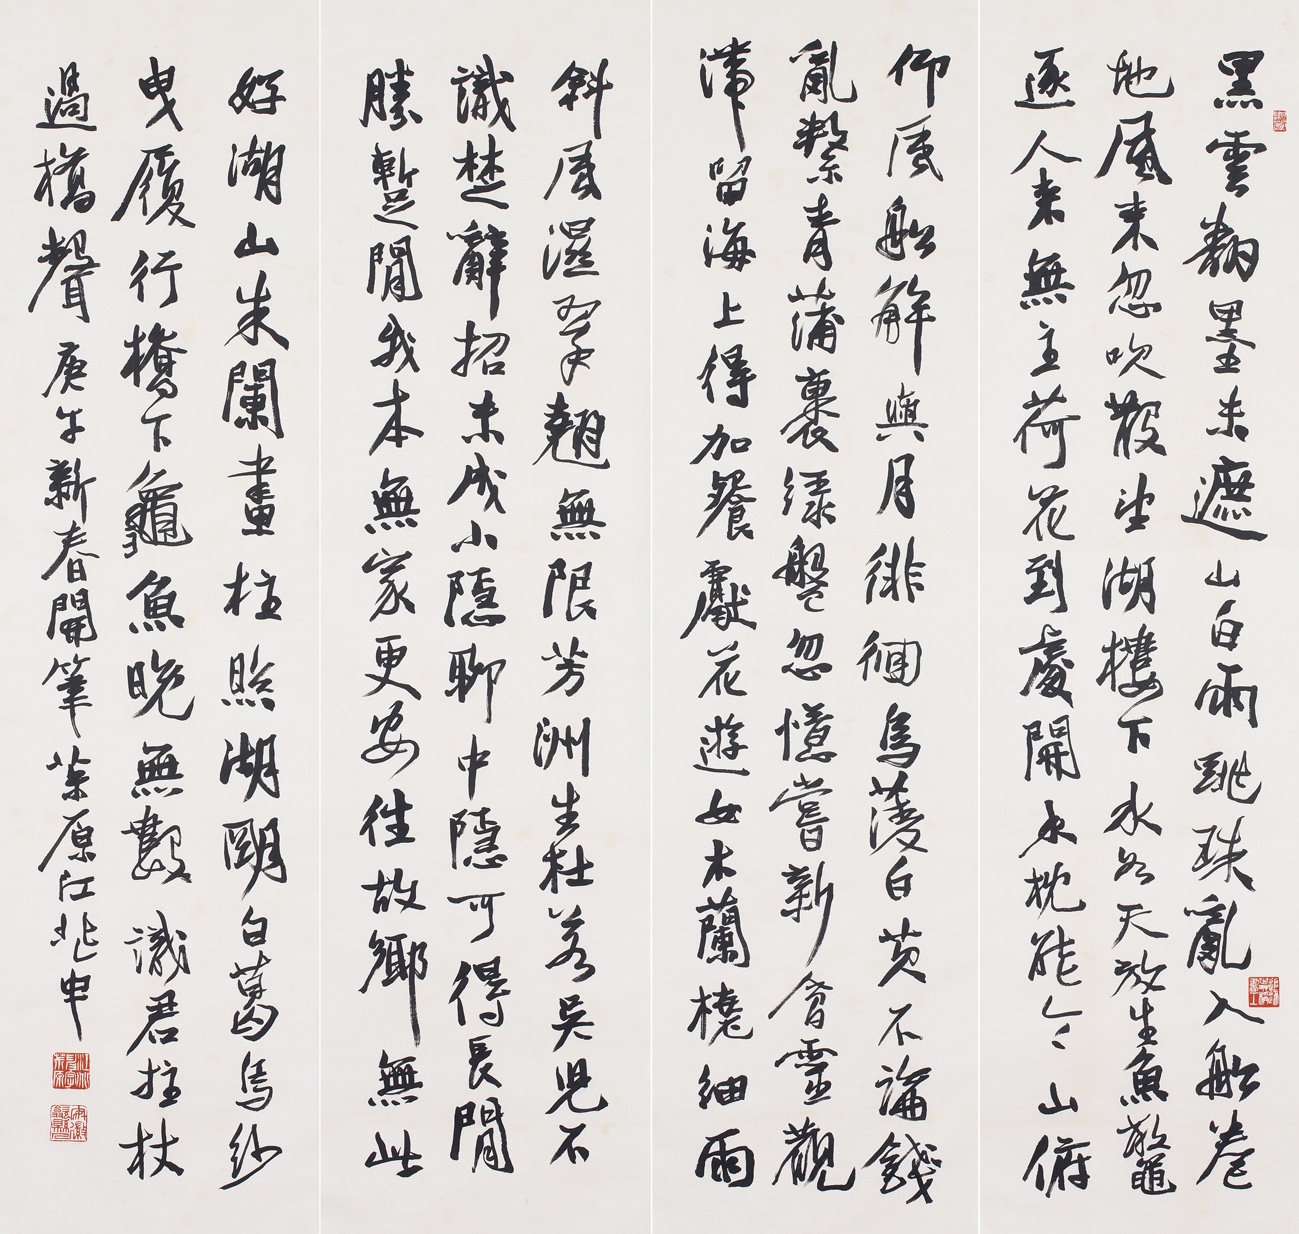 黑雲翻墨未遮山白雨跳珠亂入船卷
地風來忽吹散望湖樓下水如天放生魚鼈
逐人來無主荷花到處開水枕能令山俯
仰風船解與月徘徊烏菱白芡不論錢
亂繫青蒲裹綠盤忽憶嘗新會靈觀
滯留海上得加餐獻花遊女木蘭橈細雨
斜風濕翠翹無限芳洲生杜若吳兒不
識楚辭招未成小隱聊中隱可得長閒
勝暫閒我本無家更安往故鄉無此
好湖山朱闌畫柱照湖明白葛烏紗
曳履行橋下龜魚晚無數識君拄杖
過橋聲庚午新春開筆茮原江兆申